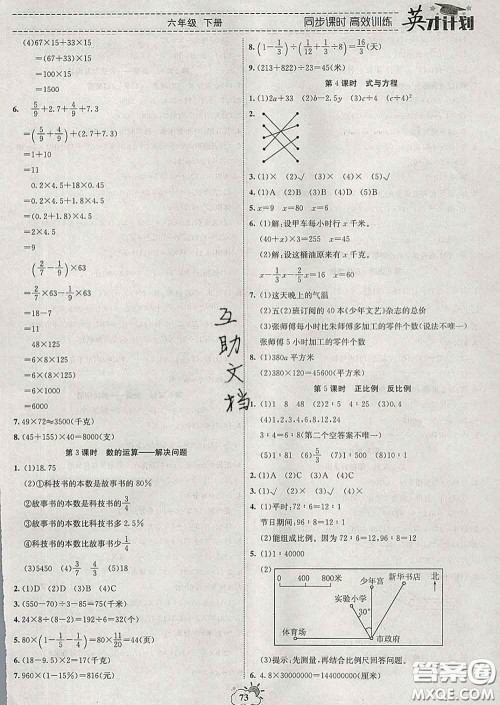 六年级 下册
同步课时 高效训练
英才计划
(4)(67×15+33×15)÷15
=1500÷15
=100
6. 5/9+2.7+4/9+7.3
=(5/9+4/9)+(2.7+7.3)
=1+10
=11
0.2×4.5+18×0.2
=0.2×(4.5+18)
=0.2×22.5
=4.5
(2/7-1/9)×63
=2/7×63-1/9×63
=18-7
=11
=15×8×50
=120×50
=6000
=6×1000
=6000
7. 49×72≈3500(千克)
8. (45+155)×40=8000(支)
第3课时 数的运算——解决问题
1. (1)18.75
(2)①科技书的本数是故事书的80%
②故事书的本数是科技书的3/4
③故事书的本数比科技书多2.5%
④科技书的本数比故事书少1/4
(3)5450 (4)3/4
2. (1)D (2)C (3)D (4)C
3. (550-70)÷3=160(米)
4. 9×24÷(9+3)=18(天)
5. 80×(1-1/5-1/4)=80×11/20=44(页)
6. 8÷4/5÷5/7=14(岁)
7. 960×(1-15%)=816(元)
8. (1-1/3)÷(1/3÷8)=16(天)
9. (213+822)÷23=45(米)
第4课时 式与方程
1. (1)2a+33 (2)b-2.5y (3)c÷4 (c÷4)²
2.
3. (1)× (2)√ (3)√ (4)×
4. (1)B (2)D (3)A (4)D
5. x=9 x=80
6. (1)解:设甲车每小时行x千米。
(40+x)×3=255 x=45
(2)解:设这桶油原来有x千克。
x-1/3x-2/5x=16 x=60
7. (1)这天晚上的气温
(2)五(2)班订阅的40本《少年文艺》杂志的总价
(3)张师傅每小时比朱师傅多加工的零件个数(说法不唯一)
张师傅x小时加工的零件个数
8. (1)380a平方米
(2)380×120=45600(平方米)
第5课时 正比例 反比例
1. (1)1 8 48 (2)2 5 4∶5 0.8
(3)1∶24000000
(4)12.4 9.6 8∶3(第二个空答案不唯一)
2. (1)√ (2)× (3)√ (4)√
3. (1)C (2)B (3)A (4)B
4. (1)平时:72∶6=12∶1
节日期间:96∶8=12∶1
(2)能组成比例。因为96∶8=72∶6。
5. (1)1∶40000
(2)
0 400 800米
少年宫
新华书店
北
实验小学
30°
体育场
市政府
(3)提示:作图题,答案根据实际问题回答。
6. 4.8×30000000×1/
互助文档
73
答案圈
MXQE.COM